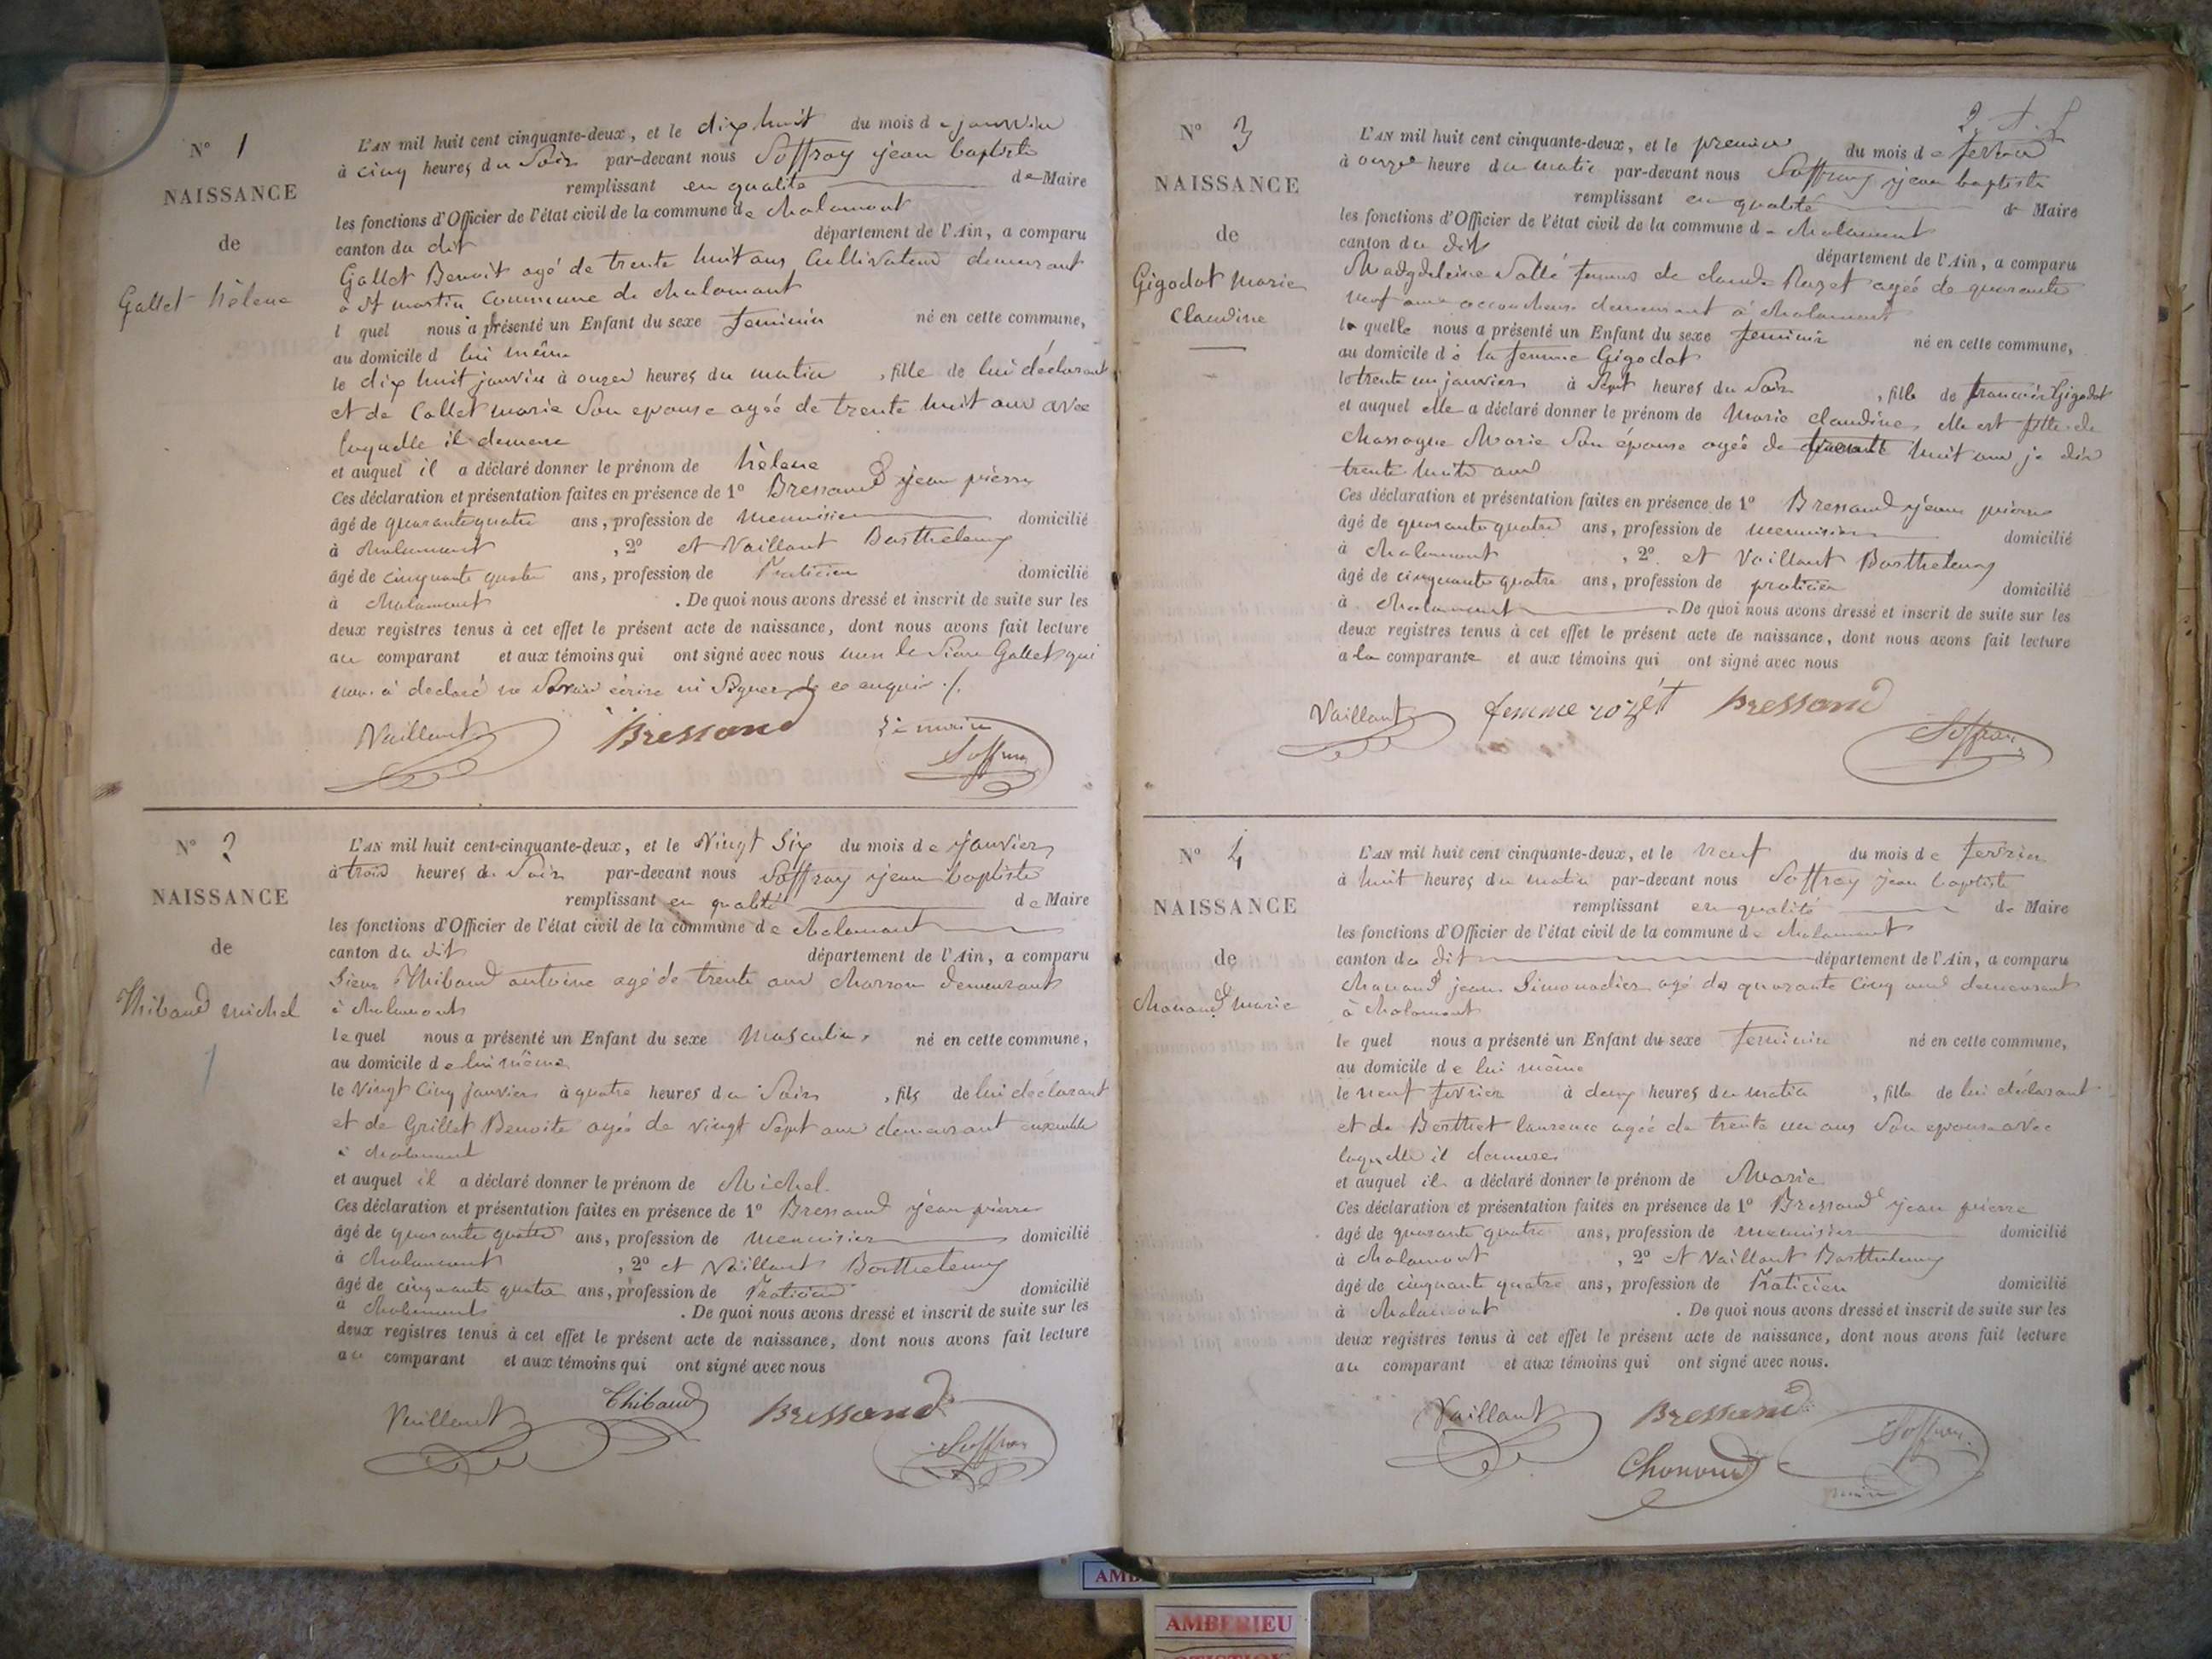 N° 1
NAISSANCE
de
Gallet hèlene
L'AN mil huit cent cinquante-deux, et le dix huit du mois de janvier
à cinq heures du Soir par-devant nous Soffray jean baptiste
remplissant en qualité de Maire
les fonctions d'Officier de l'état civil de la commune de chalamont
canton du dit département de l'Ain, a comparu
Gallet Benoit agé de trente huit ans Cultivateur demeurant
à st martin Commune de chalamont
l quel nous a présenté un Enfant du sexe feminin né en cette commune,
au domicile d lui même
le dix huit janvier à onze heures du matin , fille de lui déclarant
et de Collet marie Son epouse agée de trente huit ans avec
laquelle il demeure
et auquel il a déclaré donner le prénom de hèlene
Ces déclaration et présentation faites en présence de 1° Bressand jean pierre
âgé de quarante quatre ans, profession de menuisier domicilié
à chalamont , 2° et Vaillant Barthelemy
âgé de cinquante quatre ans, profession de Praticien domicilié
à chalamont . De quoi nous avons dressé et inscrit de suite sur les
deux registres tenus à cet effet le présent acte de naissance, dont nous avons fait lecture
au comparant et aux témoins qui ont signé avec nous non le Sieur Gallet qui
a déclaré ne Savoir écrire ni Signer de ce enquis ./.
Vaillant Bressand
Soffray
N° 2
NAISSANCE
de
Thibaud michel
L'AN mil huit cent-cinquante-deux, et le Vingt Six du mois de janvier
à trois heures du Soir par-devant nous Soffray jean baptiste
remplissant en qualité de Maire
les fonctions d'Officier de l'état civil de la commune de chalamont
canton du dit département de l'Ain, a comparu
Sieur Thibaud antoine agé de trente ans charron demeurant
à chalamont
le quel nous a présenté un Enfant du sexe Masculin né en cette commune,
au domicile de lui même
le Vingt Cinq janvier à quatre heures du Soir , fils de lui déclarant
et de Grillet Benoite agée de vingt Sept ans demeurant ensemble
à chalamont
et auquel il a déclaré donner le prénom de Michel
Ces déclaration et présentation faites en présence de 1° Bressand jean pierre
âgé de quarante quatre ans, profession de menuisier domicilié
à chalamont , 2° et Vaillant Barthelemy
âgé de cinquante quatre ans, profession de Praticien domicilié
à chalamont . De quoi nous avons dressé et inscrit de suite sur les
deux registres tenus à cet effet le présent acte de naissance, dont nous avons fait lecture
au comparant et aux témoins qui ont signé avec nous
Vaillant Thibaud Bressand
Soffray
N° 3
NAISSANCE
de
Gigodot marie
Claudine
L'AN mil huit cent cinquante-deux, et le premier du mois de fevrier
à onze heure du matin par-devant nous Soffray jean baptiste
remplissant en qualité de Maire
les fonctions d'Officier de l'état civil de la commune de chalamont
canton du dit département de l'Ain, a comparu
Madgdeleine femme de claude Rozet agée de quarante
neuf ans accoucheuse demeurant à chalamont
la quelle nous a présenté un Enfant du sexe feminin né en cette commune,
au domicile de la femme Gigodot
le trente un janvier à Sept heures du Soir , fille de Gigodot
et auquel elle a déclaré donner le prénom de Marie claudine, elle est fille de
Marie Son épouse agée de quarante huit ans je dis
trente huit ans
Ces déclaration et présentation faites en présence de 1° Bressand jean pierre
âgé de quarante quatre ans, profession de menuisier domicilié
à chalamont , 2° et Vaillant Barthelemy
âgé de cinquante quatre ans, profession de praticien domicilié
à chalamont . De quoi nous avons dressé et inscrit de suite sur les
deux registres tenus à cet effet le présent acte de naissance, dont nous avons fait lecture
a la comparante et aux témoins qui ont signé avec nous
Vaillant femme rozet Bressand
Soffray
N° 4
NAISSANCE
de
Chanand marie
L'AN mil huit cent cinquante-deux, et le neuf du mois de fevrier
à huit heures du matin par-devant nous Soffray jean baptiste
remplissant en qualité de Maire
les fonctions d'Officier de l'état civil de la commune de chalamont
canton du dit département de l'Ain, a comparu
Chanand jean limonadier agé de quarante Cinq ans demeurant
à chalamont
le quel nous a présenté un Enfant du sexe feminin né en cette commune,
au domicile de lui même
le neuf fevrier à deux heures du matin , fille de lui déclarant
et de Berthet laurence agée de trente un ans Son epouse avec
laquelle il demeure
et auquel il a déclaré donner le prénom de Marie
Ces déclaration et présentation faites en présence de 1° Bressand jean pierre
âgé de quarante quatre ans, profession de menuisier domicilié
à chalamont , 2° et Vaillant Barthelemy
âgé de cinquante quatre ans, profession de Praticien domicilié
à chalamont . De quoi nous avons dressé et inscrit de suite sur les
deux registres tenus à cet effet le présent acte de naissance, dont nous avons fait lecture
au comparant et aux témoins qui ont signé avec nous.
Vaillant Bressand
Soffray
Chanand
AMBERIEU